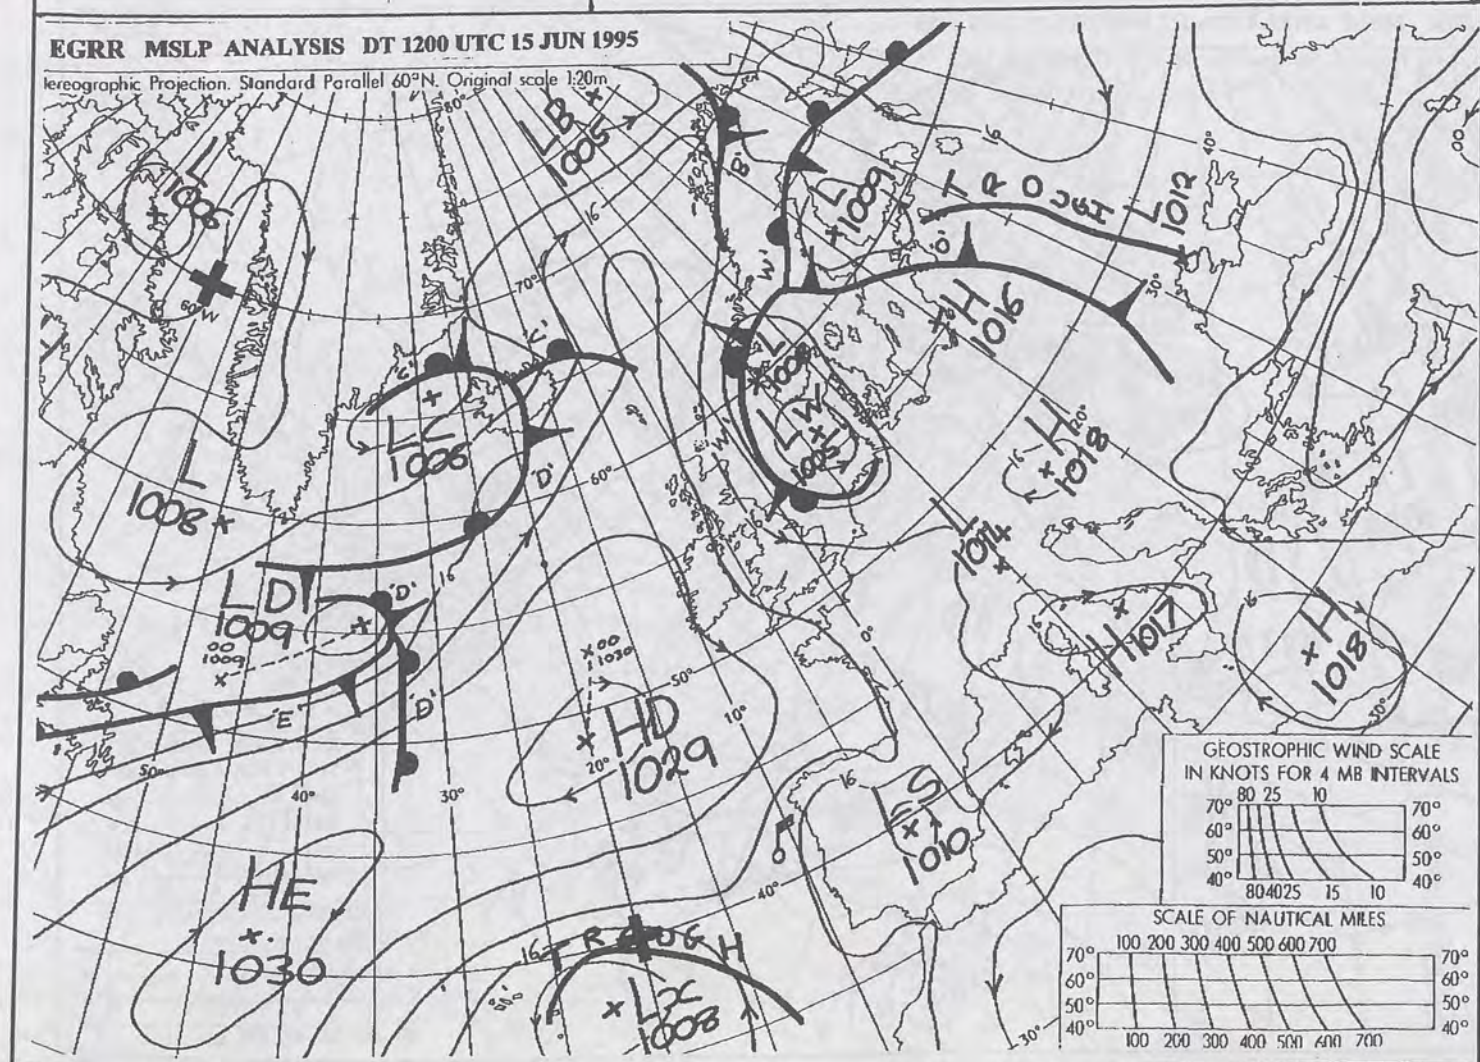 EGRR MSLP ANALYSIS DT 1200 UTC 15 JUN 1995
tereographic Projection. Standard Parallel 60°N. Original scale 1:20m
80°
L B
1005
L
1006
60°W
16
70°
'B'
L
1009
TROUGH
L
1012
16
40°
00
'O'
30°
H
1016
W'
L
L W
1005
W'
'C'
'C'
L C
1006
L
1008
'D'
60°
H
1018
16
20°
L
1014
L D
1009
00
1009
'D'
16
00
1030
50°
0°
H
1017
16
H
1018
30°
'E'
'D'
H D
1029
20°
10°
50°
40°
30°
16
L ES
1010
40°
HE
1030
16
TROUGH
L X
1008
30°
GEOSTROPHIC WIND SCALE
IN KNOTS FOR 4 MB INTERVALS
80 25 10
70° 70°
60° 60°
50° 50°
40° 40°
80 40 25 15 10
SCALE OF NAUTICAL MILES
100 200 300 400 500 600 700
70° 70°
60° 60°
50° 50°
40° 40°
100 200 300 400 500 600 700